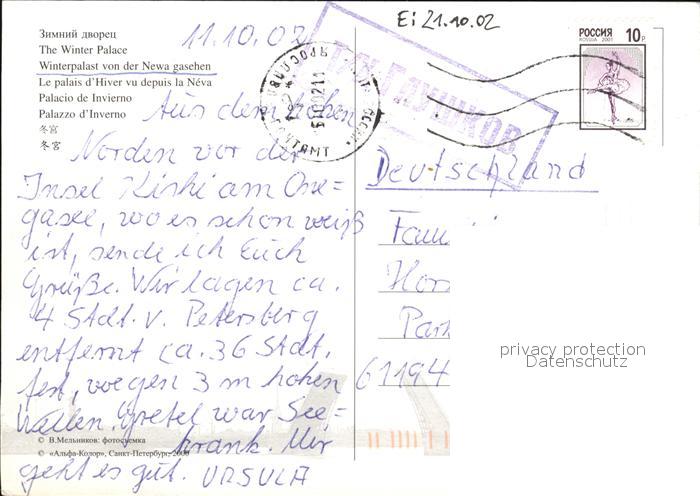 Ei 21.10.02
Зимний дворец
The Winter Palace
Winterpalast von der Newa gesehen
Le palais d'Hiver vu depuis la Néva
Palacio de Invierno
Palazzo d'Inverno
冬宮
冬宮
11.10.02
РОССИЯ 10р
ROSSIA 2001
Aus dem hohen
Norden vor der
Insel Kishi am One=
gasee, wo es schon weiß
ist, sende ich Euch
Grüße. Wir lagen ca.
4 Std. v. Petersberg
entfernt ca. 36 Std.
fest, wegen 3 m hohen
Wellen. Gretel war See=
krank. Mir
geht es gut. URSULA
Deutschland
Fam
Hors
Par
61194
privacy protection
Datenschutz
© В.Мельников: фотосъемка
© «Альфа-Колор», Санкт-Петербург, 2000